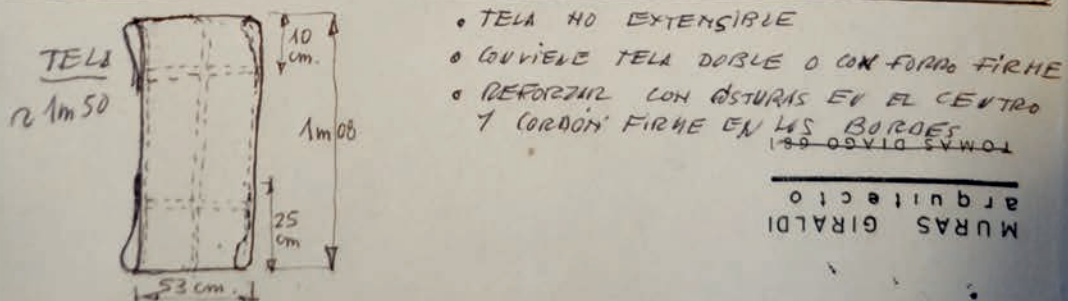 TELA
~ 1m50
10
cm.
1m08
25
cm
53 cm.
• TELA NO EXTENSIBLE
• CONVIENE TELA DOBLE O CON FORRO FIRME
• REFORZAR CON COSTURAS EN EL CENTRO
Y CORDÓN FIRME EN LOS BORDES
MURAS GIRALDI
arquitecto
TOMAS DIAGO 681